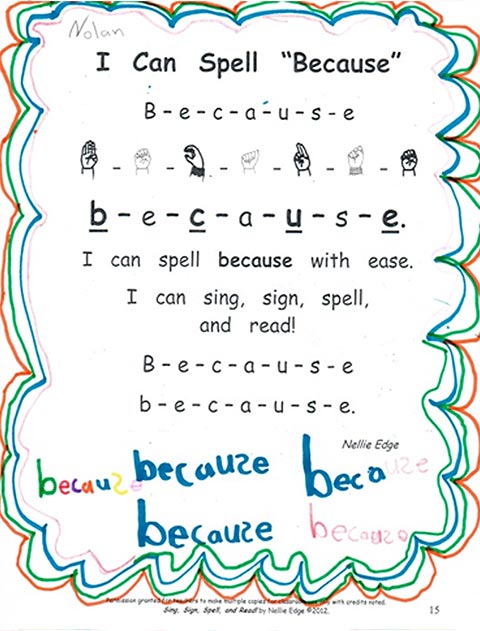 Nolan
I Can Spell “Because”
B - e - c - a - u - s - e
b - e - c - a - u - s - e.
I can spell because with ease.
I can sing, sign, spell,
and read!
B - e - c - a - u - s - e
b - e - c - a - u - s - e.
Nellie Edge
because because because
because because
Permission granted for teachers to make multiple copies for classroom use only with credits noted.
Sing, Sign, Spell, and Read! by Nellie Edge ©2012. 15